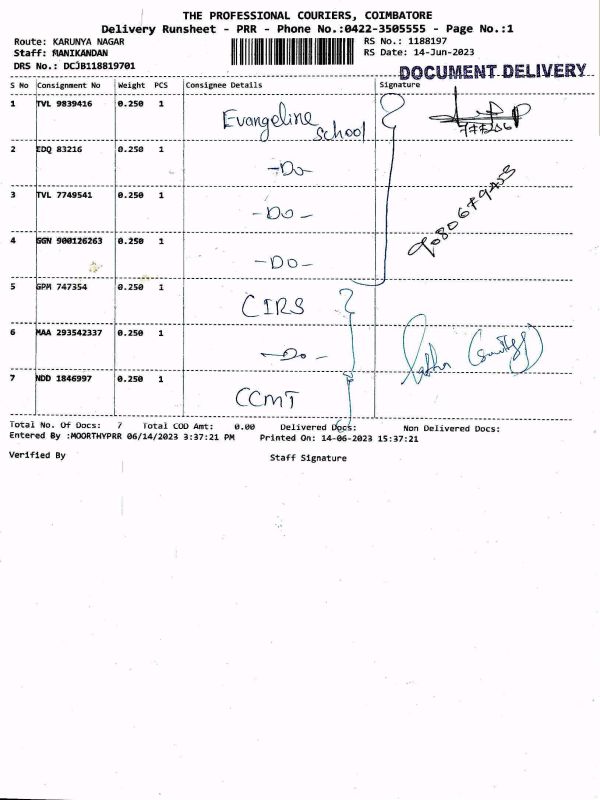 THE PROFESSIONAL COURIERS, COIMBATORE
Delivery Runsheet - PRR - Phone No.:0422-3505555 - Page No.:1
Route: KARUNYA NAGAR RS No.: 1188197
Staff: MANIKANDAN RS Date: 14-Jun-2023
DRS No.: DCJB118819701
DOCUMENT DELIVERY
S No Consignment No Weight PCS Consignee Details Signature
1 TVL 9839416 0.250 1 Evangeline School
2 EDQ 83216 0.250 1 -Do-
3 TVL 7749541 0.250 1 -Do-
4 GGN 900126263 0.250 1 -Do-
5 GPM 747354 0.250 1 CIRS
6 MAA 293542337 0.250 1 -Do-
7 NDD 1846997 0.250 1 CCMT
Total No. Of Docs: 7 Total COD Amt: 0.00 Delivered Docs: Non Delivered Docs:
Entered By :MOORTHYPRR 06/14/2023 3:37:21 PM Printed On: 14-06-2023 15:37:21
Verified By Staff Signature